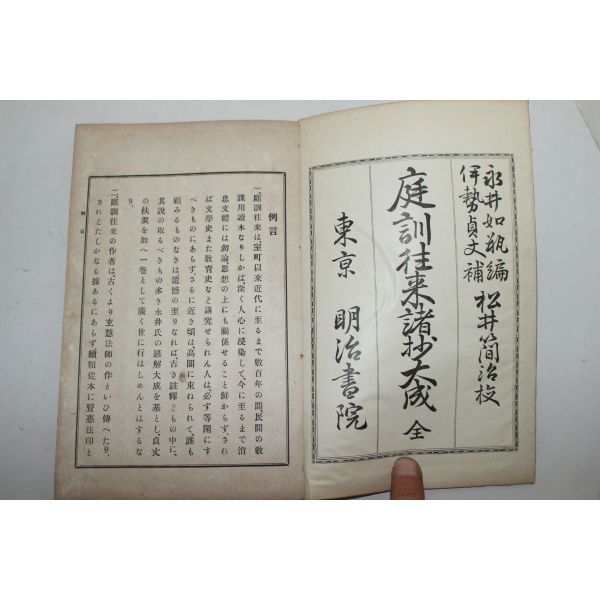 永井如瓶編
伊勢貞丈補
松井簡治校
庭訓往来諸抄大成 全
東京 明治書院
例言
一、庭訓往來は、室町以來近代に至るまで數百年の間、民間の敎
課用讀本なりしかば、深く人心に浸染して、今に至るまで消
息文體には勿論、思想の上にも關係せること鮮からず。され
ば文學史また敎育史など講究せられん人は、必ず等閑にす
べきものにあらず。さるに近き頃は、高閣に束ねられて、誰も
顧みるものなきは、遺憾の至りなれば、古き註釋どもの中に、
其說の取るべきもの多き永井氏の諺解大成を基とし、貞丈
の扶翼を加へ一卷として、廣く世に行はしめんとはするな
り。
二、庭訓往來の作者は、古くより玄慧法師の作といひ傳へたり。
されどたしかなる據あるにあらず。續類從本に賢惠法印と
例言